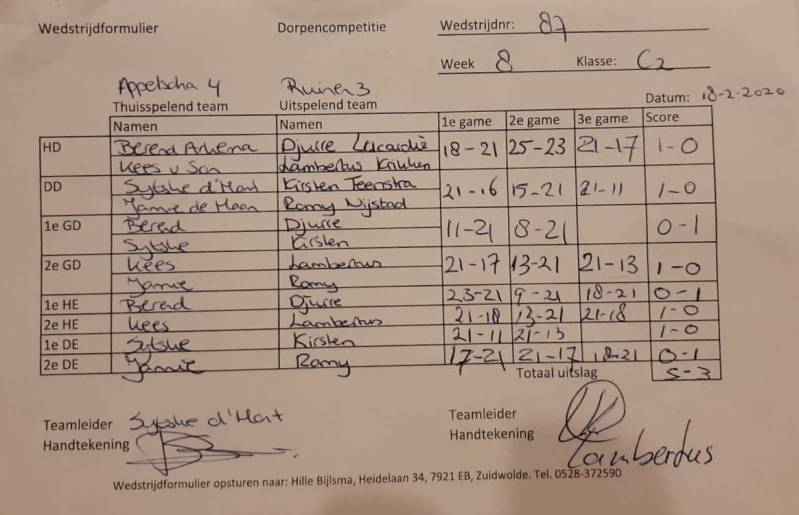 Wedstrijdformulier Dorpencompetitie Wedstrijdnr: 87
Week 8 Klasse: C2
Appelscha 4 Ruinen 3 Datum: 18-2-2020
Thuisspelend team Uitspelend team
Namen Namen 1e game 2e game 3e game Score
HD Berend Arkema Djurre Lucardie 18-21 25-23 21-17 1-0
Kees v Son Lambertus
DD Sytske d'Hont Kirsten Teenstra 21-16 15-21 21-11 1-0
Jannie de Haan Romy Nijstad
1e GD Berend Djurre 11-21 8-21 0-1
Sytske Kirsten
2e GD Kees Lambertus 21-17 13-21 21-13 1-0
Jannie Romy
1e HE Berend Djurre 23-21 9-21 18-21 0-1
2e HE Kees Lambertus 21-18 13-21 21-18 1-0
1e DE Sytske Kirsten 21-11 21-13 1-0
2e DE Jannie Romy 17-21 21-17 18-21 0-1
Totaal uitslag 5-3
Teamleider Sytske d'Hont Teamleider
Handtekening Handtekening Lambertus
Wedstrijdformulier opsturen naar: Hille Bijlsma, Heidelaan 34, 7921 EB, Zuidwolde. Tel. 0528-372590